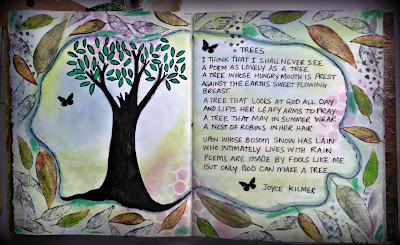 TREES
I THINK THAT I SHALL NEVER SEE
A POEM AS LOVELY AS A TREE
A TREE WHOSE HUNGRY MOUTH IS PREST
AGAINST THE EARTHS SWEET FLOWING
BREAST
A TREE THAT LOOKS AT GOD ALL DAY
AND LIFTS HER LEAFY ARMS TO PRAY
A TREE THAT MAY IN SUMMER WEAR
A NEST OF ROBINS IN HER HAIR
UPON WHOSE BOSOM SNOW HAS LAIN
WHO INTIMATELY LIVES WITH RAIN
POEMS ARE MADE BY FOOLS LIKE ME
BUT ONLY GOD CAN MAKE A TREE
JOYCE KILMER